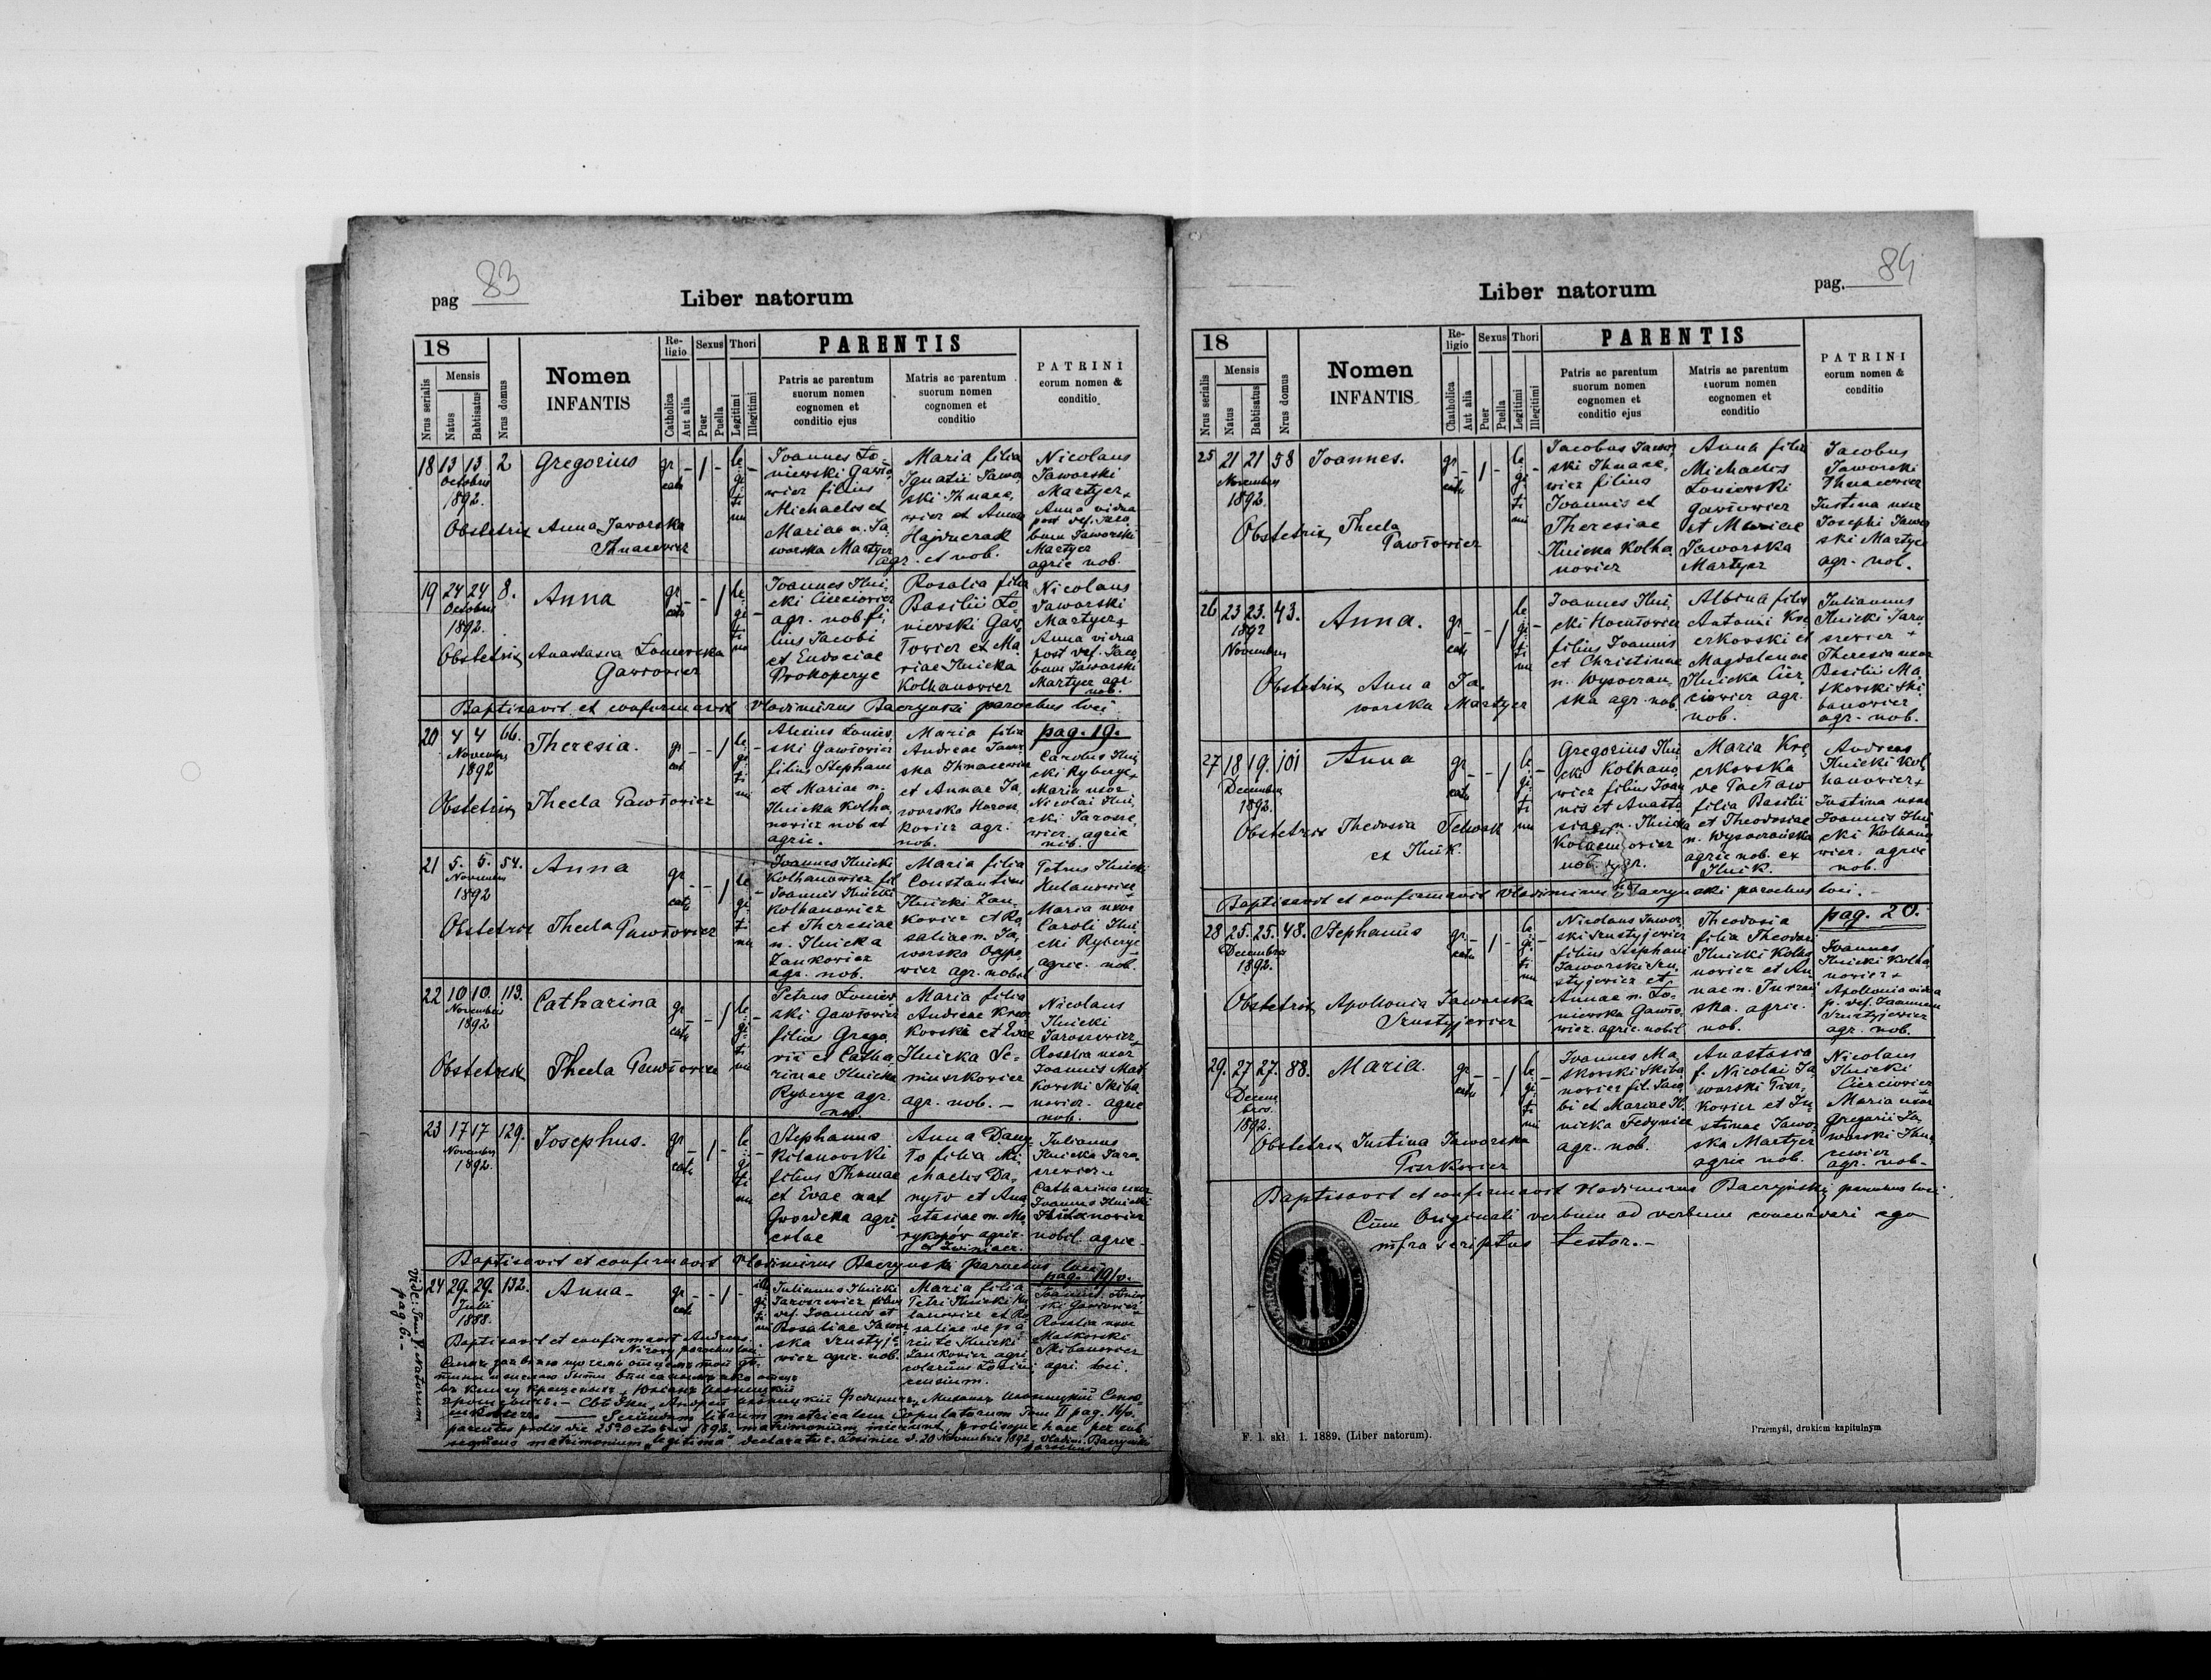 pag 83
Liber natorum
18
Nrus serialis
Mensis
Natus
Babtisatus
Nrus domus
Nomen
INFANTIS
Re-
ligio
Catholica
Aut alia
Sexus
Puer
Puella
Thori
Legitimi
Illegitimi
PARENTIS
Patris ac parentum
suorum nomen
cognomen et
conditio ejus
Matris ac parentum
suorum nomen
cognomen et
conditio
PATRINI
eorum nomen &
conditio
18 13 13 2 Gregorius
Octobris
1892.
Obstetrix Anna Jaworska
Ihnacewicz
gr
cath
- 1 -
le
gi
ti
mi
Joannes Ło-
niewski Gawło
wicz filius
Michaelis et
Mariae n. Ja
worska Martycz
agr. et nob.
Maria filia
Ignatii Jawor
ski Ihnace,
wicz et Annae
Hajduczak
Nicolaus
Jaworski
Martycz +
Anna vidua
post def. Jaco
bum Jaworski
Martycz
agric nob.
19 24 24 8. Anna
Octobris
1892.
Obstetrix Anastasia Łoniewska
Gawłowicz
gr
cath
- - 1
le
gi
ti
mi
Joannes Ilni,
cki Cierciowicz
agr. nob fi,
lius Jacobi
et Eudociae
Prokopczyc
Rosalia filia
Basilii Ło
niewski Gaw,
łowicz et Ma
riae Ilnicka
Kolhanowicz
Nicolaus
Jaworski
Martycz +
Anna vidua
post def. Jaco
bum Jaworski
Martycz agr
nob.
Baptisavit et confirmavit Vladimirus Baczyński parochus loci.
20 4 4 66. Theresia.
Novembris
1892
Obstetrix Thecla Pawłowicz
gr
cat
- - 1
le
gi
ti
mi
Alexius Łoniew,
ski Gawłowicz
filius Stephani
et Mariae n.
Ilnicka Kolha,
nowicz nob et
agric.
Maria filia
Andreae Jawor
ska Ihnacewicz
et Annae Ja,
worska
kowicz agr.
nob.
pag. 19.
Carolus Ilni,
cki Ryberyc +
Maria uxor
Nicolai Ilni,
cki Jarosze,
wicz. agric
nob.
21 5. 5. 54. Anna
Novembris
1892
Obstetrix Thecla Pawłowicz
gr
cath
- - 1
le
gi
ti
mi
Joannes Ilnicki
Kolhanowicz fil
Joannis Ilnicki
Kolhanowicz
et Theresiae
n. Ilnicka
Zankowicz
agr. nob.
Maria filia
Constantini
Ilnicki Zan,
kowicz et Ro
saliae n. Ja,
worska
wicz agr. nobil
Petrus Ilnicki
Hulanowicz
Maria uxor
Caroli Ilni,
cki Ryberyc
agric. nob.
22 10 10. 113. Catharina
Novembris
1892
Obstetrix Thecla Pawłowicz
gr
cath
- - 1
le
gi
ti
mi
Petrus Łoniew
ski Gawłowicz
filius Grego,
rii et Catha,
rinae Ilnicka
Ryberyc agr.
nob.
Maria filia
Andreae Kre
kovski et Evae
Ilnicka Se-
niuszkowicz
agr. nob. -
Nicolaus
Ilnicki
Jaroszewicz +
Rosalia uxor
Joannis Mat
kowski Skiba
nowicz. agric
nob.
23 17 17 129. Josephus.
Novembris
1892.
gr
cath
- 1 -
le
gi
ti
mi
Stephanus
Kilanovski
filius Thomae
et Evae nat
agri
colae
Anna Dany
ło filia Mi
chaelis Da-
nyło et Ana
stasiae n. Mo
agric.
Julianus
Ilnicki Jaro
szewicz +
Catharina uxor
Joannis Ilnicki
nobil. agric-
Baptisavit et confirmavit Vladimirus Baczynski parochus loci
24 29. 29. 132. Anna-
Julii
1888.
Vide: Tom V natorum
pag. 6.-
gr
cat
- 1 -
Julianus Ilnicki
Jaroszewicz filius
def. Joannis et
Rosaliae Jawor
ska Szustyje
wicz agric. nob.
Maria filia
Petri Ilnicki Hu
lanowicz et Ro
saliae
Ilnicki
Zankowicz agri
colarum
pag. 19/v.
Joannes Łoniew
ski Gawłowicz +
Rosalia uxor
Matkowski
Skibanowicz
agri. loci.
Baptisavit et confirmavit Andreas
parochus loci.
Secundum librum matricalem Copulatorum Tom II pag. 16/v.
parentes prolis die 25 Octobris 1892 matrimonium inierunt, prolisque haec per sub
sequens matrimonium "legitima" declaratur. Łosiniec d. 20 Novembris 1892. Vladim. Baczyński
parochus
Liber natorum
pag. 84
18
Nrus serialis
Mensis
Natus
Babtisatus
Nrus domus
Nomen
INFANTIS
Re-
ligio
Chatholica
Aut alia
Sexus
Puer
Puella
Thori
Legitimi
Illegitimi
PARENTIS
Patris ac parentum
suorum nomen
cognomen et
conditio ejus
Matris ac parentum
suorum nomen
cognomen et
conditio
PATRINI
eorum nomen &
conditio
25 21 21 58 Joannes.
Novembris
1892.
Obstetrix Thecla
Pawłowicz
gr
cath
- 1 -
le
gi
ti
mi
Jacobus Jawor
ski Ihnace,
wicz filius
Joannis et
Theresiae
Ilnicka Kolha
nowicz
Anna filia
Michaelis
Łoniewski
Gawłowicz
et Mariae
Jaworska
Martycz
Jacobus
Jaworski
Ihnacewicz
Justina uxor
Josephi Jawor
ski Martycz
agr. nob.
26 23 23. 43. Anna.
1892
Novembris
Obstetrix Anna Ja,
worska Martycz
gr
cath
- - 1
le
gi
ti
mi
Joannes Ilni,
cki
filius Joannis
et Christinae
n. Wysoczan,
ska agr. nob.
Albina filia
Antoni Kre
czkovski et
Magdalenae
Ilnicka Cier,
ciowicz agr.
nob.
Julianus
Ilnicki Jaro
szewicz +
Theresia uxor
Basilii Ma,
tkowski Ski,
banowicz
agr. nob.
27 18 19. 101 Anna
Decembris
1892.
Obstetrix Thedosia
ex Ilnik.
gr
cath
- - 1
le
gi
ti
mi
Gregorius Ilni
cki Kolhano,
wicz filius Joan
nis et Anasta
siae n. Ilnicka
nob. agr.
Maria Kre
czkovska
filia Basilii
et Theodosiae
n. Wysoczańska
agric nob. ex
Ilnik.
Andreas
Ilnicki Kol
hanowicz +
Justina uxor
Joannis Ilni
cki Kolhano
wicz. agric
nob.
Baptisavit et confirmavit Vladimirus Baczyński parochus loci.-
28 25. 25. 48. Stephanus
Decembris
1892.
Obstetrix Apollonia Jaworska
Szustyjewicz
gr
cath
- 1 -
le
gi
ti
mi
Nicolaus Jawor
ski Szustyjewicz
filius Stephani
Jaworski Szu
styjewicz et
Annae n. Ło-
niewska Gawło-
wicz. agric. nobil
Theodosia
filia Theodori
Ilnicki Kolha
nowicz et An
nae n. Turzań
ska. agric.
nob.
pag. 20.
Joannes
Ilnicki Kolha
nowicz +
Apollonia vidua
p. def. Joannem
Szustyjewicz
agr. nob.
29. 27 27. 88. Maria.
Decem
bris.
1892.
Obstetrix Justina Jaworska
gr
cath
- - 1
le
gi
ti
mi
Joannes Ma,
tkowski Skiba
nowicz fil. Jaco
bi et Mariae Il,
nicka Fedynicz
agr. nob.
Anastasia
f. Nicolai Ja
worski
kowicz et Ju
stinae Jawor
ska Martycz
agric nob.
Nicolaus
Ilnicki
Cierciowicz +
Maria uxor
Gregorii Ja,
worski Ihna
cewicz
agr. nob-
Baptisavit et confirmavit Vladimirus Baczyński parochus loci
Cum Originali verbum ad verbum concordari ego
infra scriptus testor.-
F. 1. skł. 1. 1889. (Liber natorum).
Przemyśl, drukiem kapitulnym